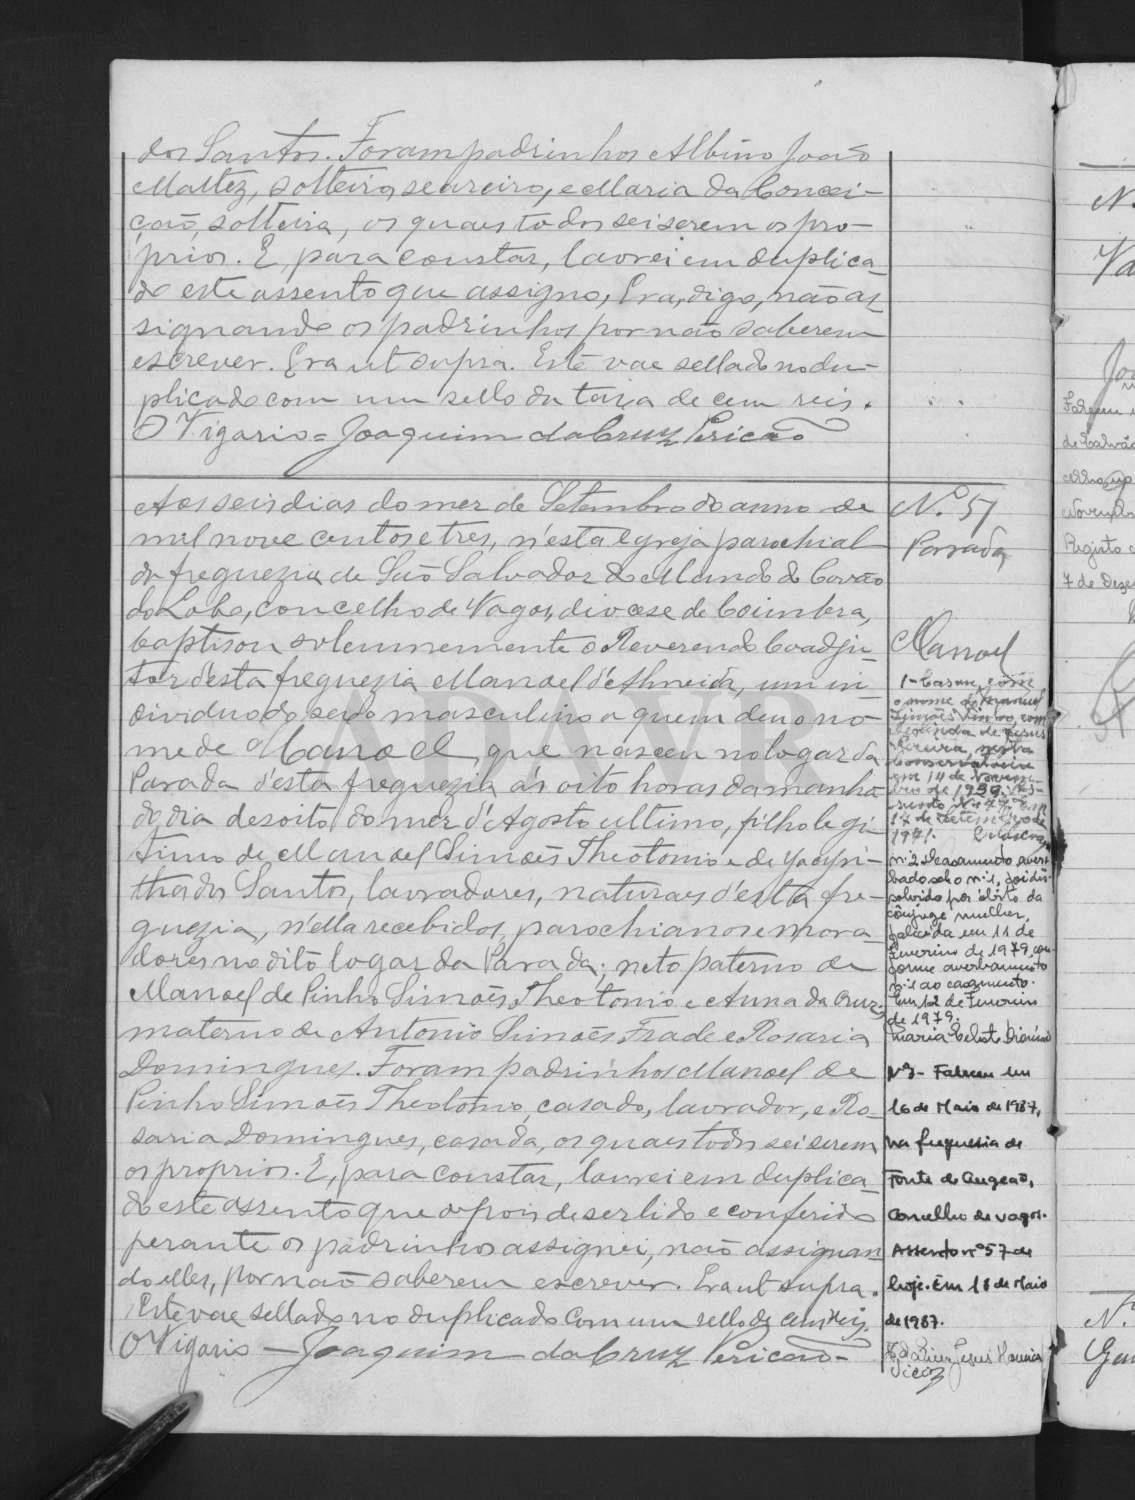 dos Santos. Foram padrinhos Albino João
Maltez, solteiro, seareiro, e Maria da Concei-
ção, solteira, os quaes todos sei serem os pro-
prios. E, para constar, lavrei em duplica-
do este assento que assigno, Era, digo, não as
signando os padrinhos por não saberem
escrever. Era ut supra. Este vae sellado no du-
plicado com um sello da taxa de cem reis.
O Vigario = Joaquim da Cruz Pericão
Aos seis dias do mez de Setembro do anno de
mil nove centos e tres, n'esta Egreja parochial
da freguezia de São Salvador do Mundo do Covão
do Lobo, concelho de Vagos, diocese de Coimbra,
baptisou solemnemente o Reverendo Coadju-
tor d'esta freguezia Manoel d'Almeida, um in-
dividuo do sexo masculino a quem deu o no-
me de Manoel, que nasceu no logar da
Parada d'esta freguezia ás oito horas da manhã
do dia desoito do mez d'Agosto ultimo, filho legi-
timo de Manoel Simões Theotonio e de Jacyn-
tha dos Santos, lavradores, naturaes d'esta fre-
guezia, n'ella recebidos, parochianos e mora-
dores no dito logar da Parada; neto paterno de
Manoel de Pinho Simões Theotonio e Anna da Cruz;
materno de Antonio Simões Frade e Rosaria
Domingues. Foram padrinhos Manoel de
Pinho Simões Theotonio, casado, lavrador, e Ro-
saria Domingues, casada, os quaes todos sei serem
os proprios. E, para constar, lavrei em duplica-
do este assento que depois de ser lido e conferido
perante os padrinhos assignei, não assignan
do elles, por não saberem escrever. Era ut supra.
Este vae sellado no duplicado com um sello de cem reis.
O Vigario — Joaquim da Cruz Pericão -
Nº 51
Parada
Manoel
1 - Casou, com
o nome de Manuel
Simões
de Jesus
Pereira, nesta
Conservatória
em 14 de Novem-
bro de 1959.
17 de Setembro de
1971.
nº 2 O casamento, aver-
bado sob o nº 1, foi dis-
solvido por óbito da
cônjuge mulher,
falecida em 11 de
Fevereiro de 1979, con-
forme averbamento
nº 1 ao casamento.
Em 12 de Fevereiro
de 1979.
Maria Celeste
Nº3 - Faleceu em
16 de Maio de 1987,
na freguesia de
Fonte de Angeão,
Concelho de Vagos.
Assento nº 57 de
hoje. Em 18 de Maio
de 1987.
ADAVR